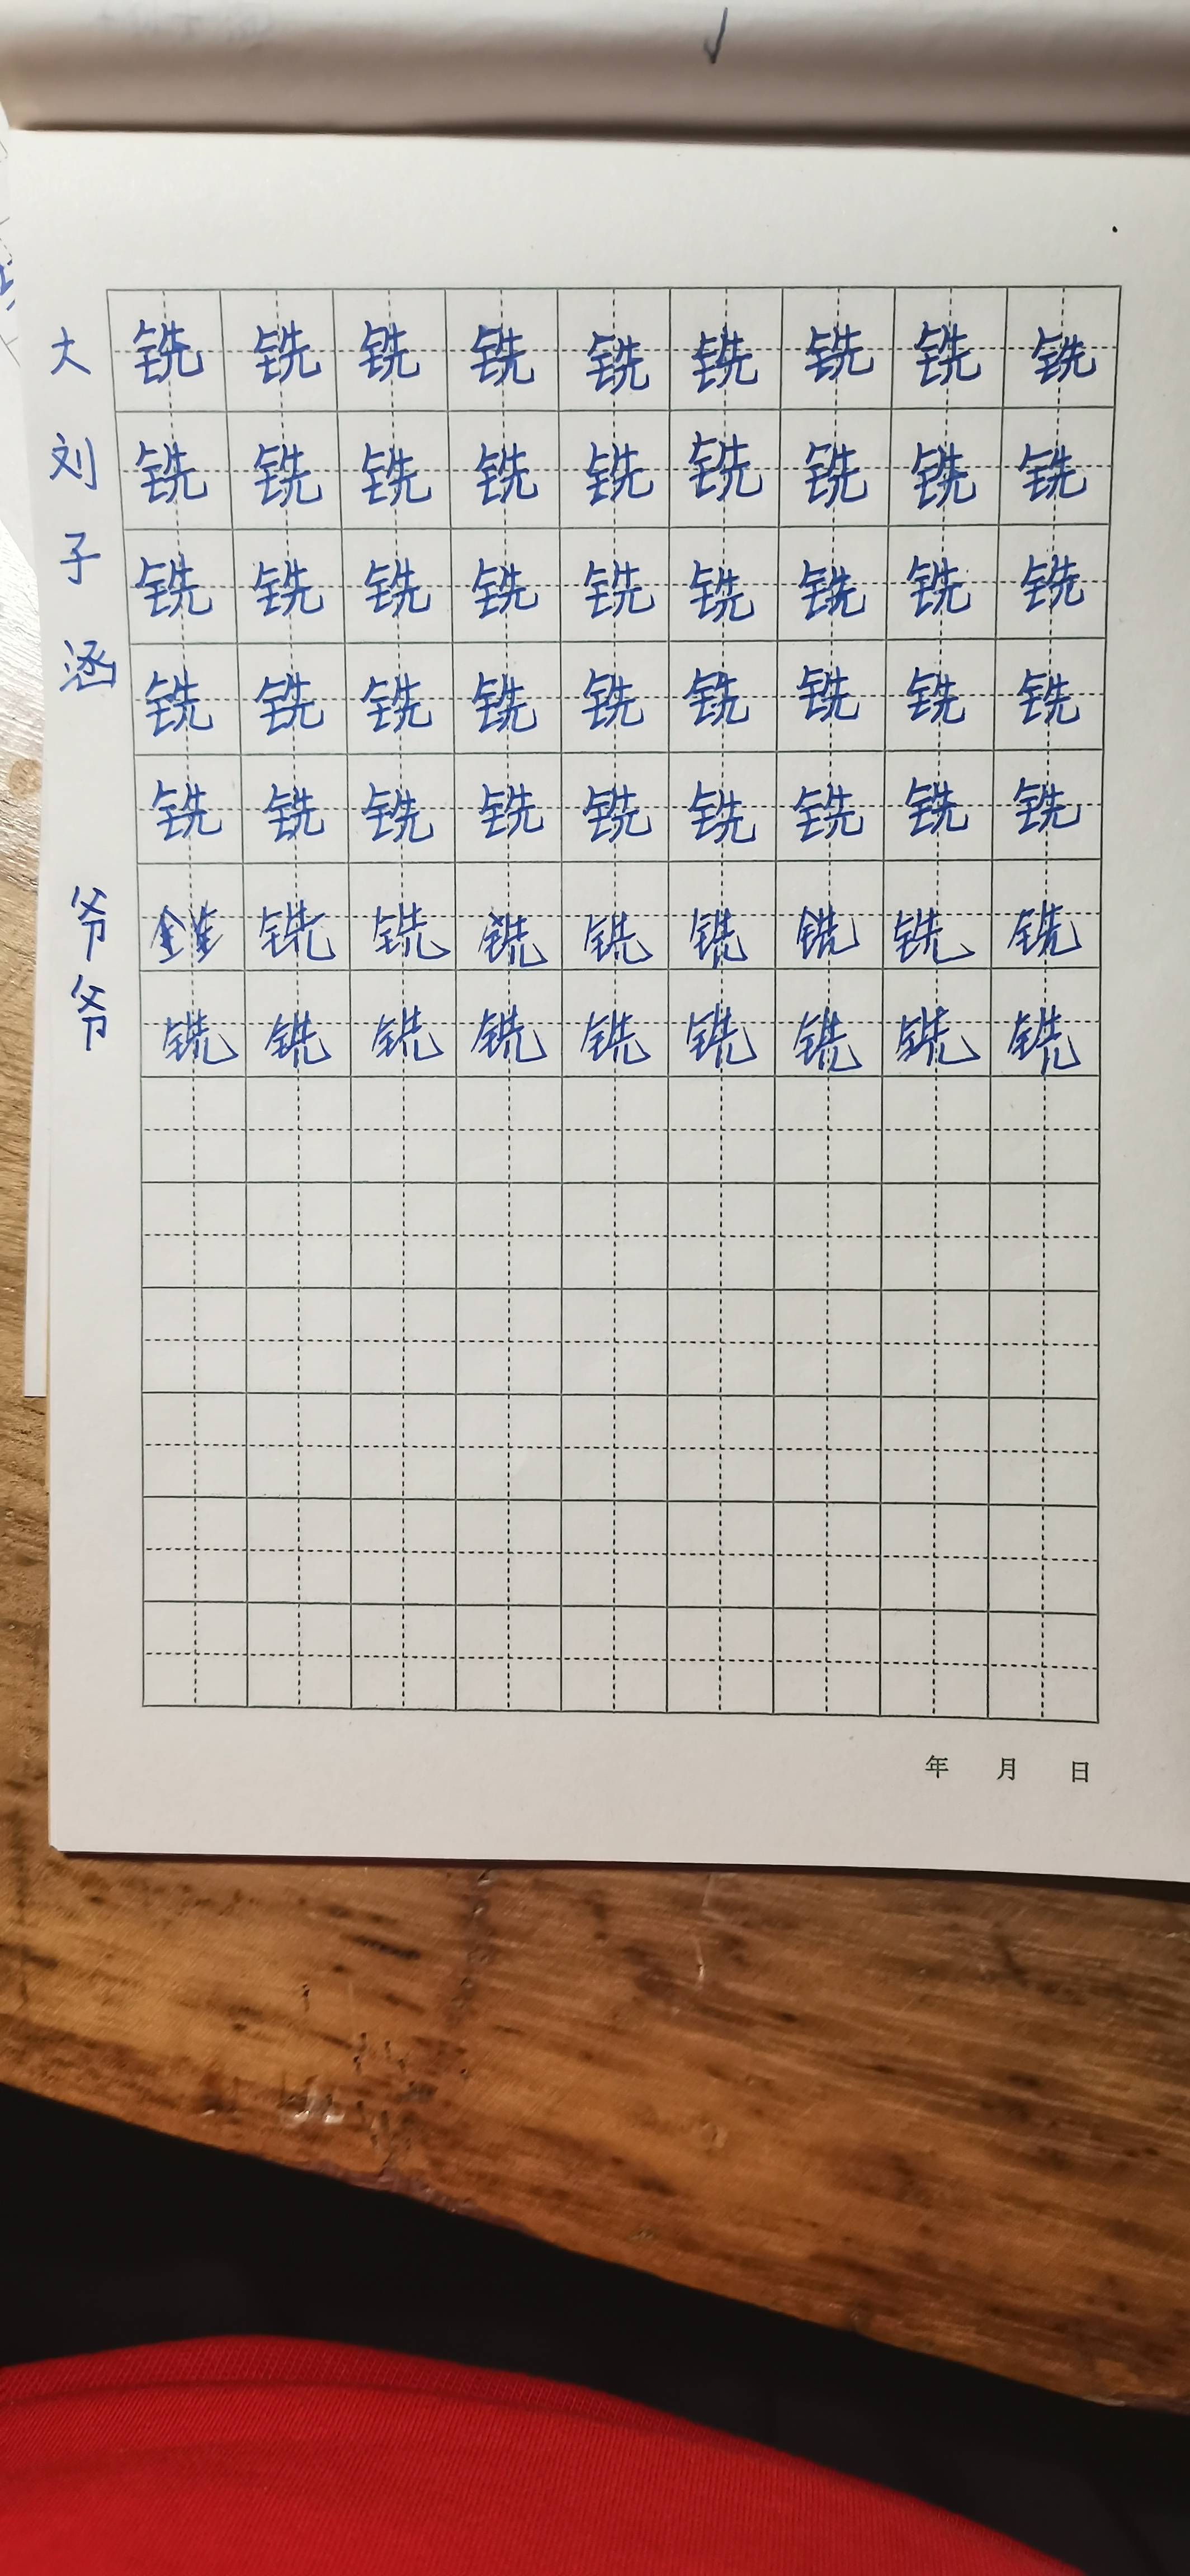 大
刘
子
涵
铣 铣 铣 铣 铣 铣 铣 铣 铣
铣 铣 铣 铣 铣 铣 铣 铣 铣
铣 铣 铣 铣 铣 铣 铣 铣 铣
铣 铣 铣 铣 铣 铣 铣 铣 铣
铣 铣 铣 铣 铣 铣 铣 铣 铣
爷
爷
铣 铣 铣 铣 铣 铣 铣 铣
铣 铣 铣 铣 铣 铣 铣 铣 铣
年 月 日